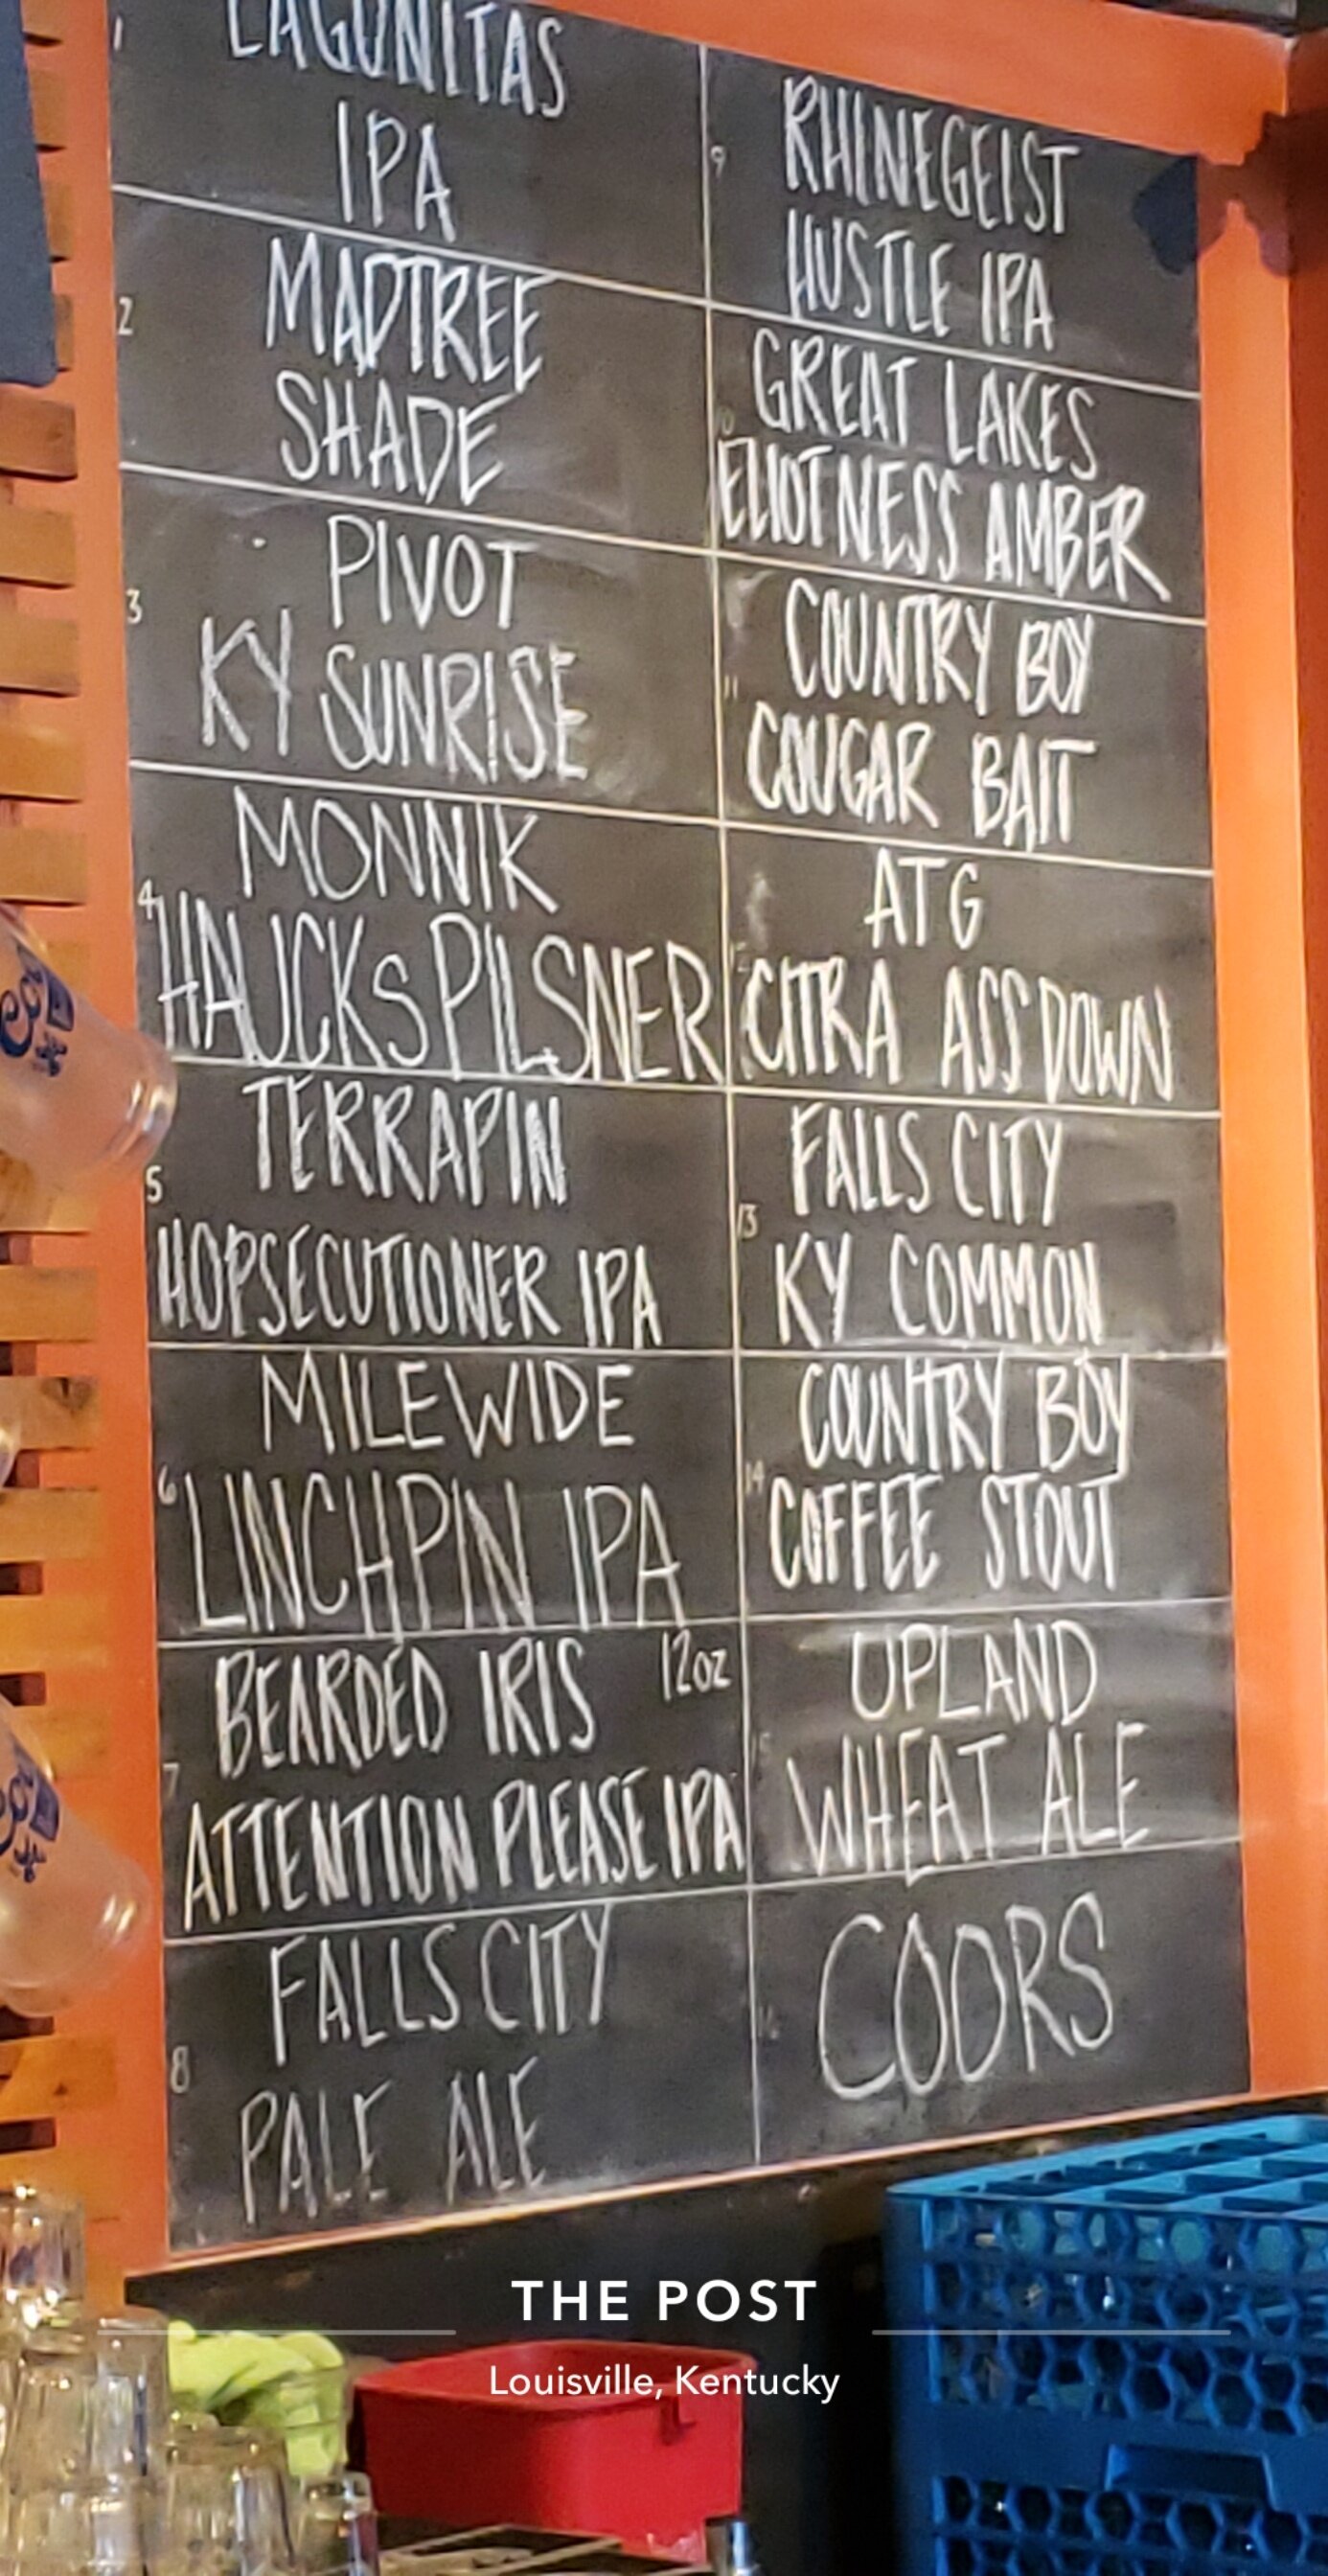 1
LAGUNITAS
IPA
2
MADTREE
SHADE
3
PIVOT
KY SUNRISE
4
MONNIK
HAUCKS PILSNER
5
TERRAPIN
HOPSECUTIONER IPA
6
MILEWIDE
LINCHPIN IPA
7
BEARDED IRIS 12oz
ATTENTION PLEASE IPA
8
FALLS CITY
PALE ALE
9
RHINEGEIST
HUSTLE IPA
10
GREAT LAKES
ELIOT NESS AMBER
11
COUNTRY BOY
COUGAR BAIT
12
ATG
CITRA ASS DOWN
13
FALLS CITY
KY COMMON
14
COUNTRY BOY
COFFEE STOUT
15
UPLAND
WHEAT ALE
16
COORS
THE POST
Louisville, Kentucky